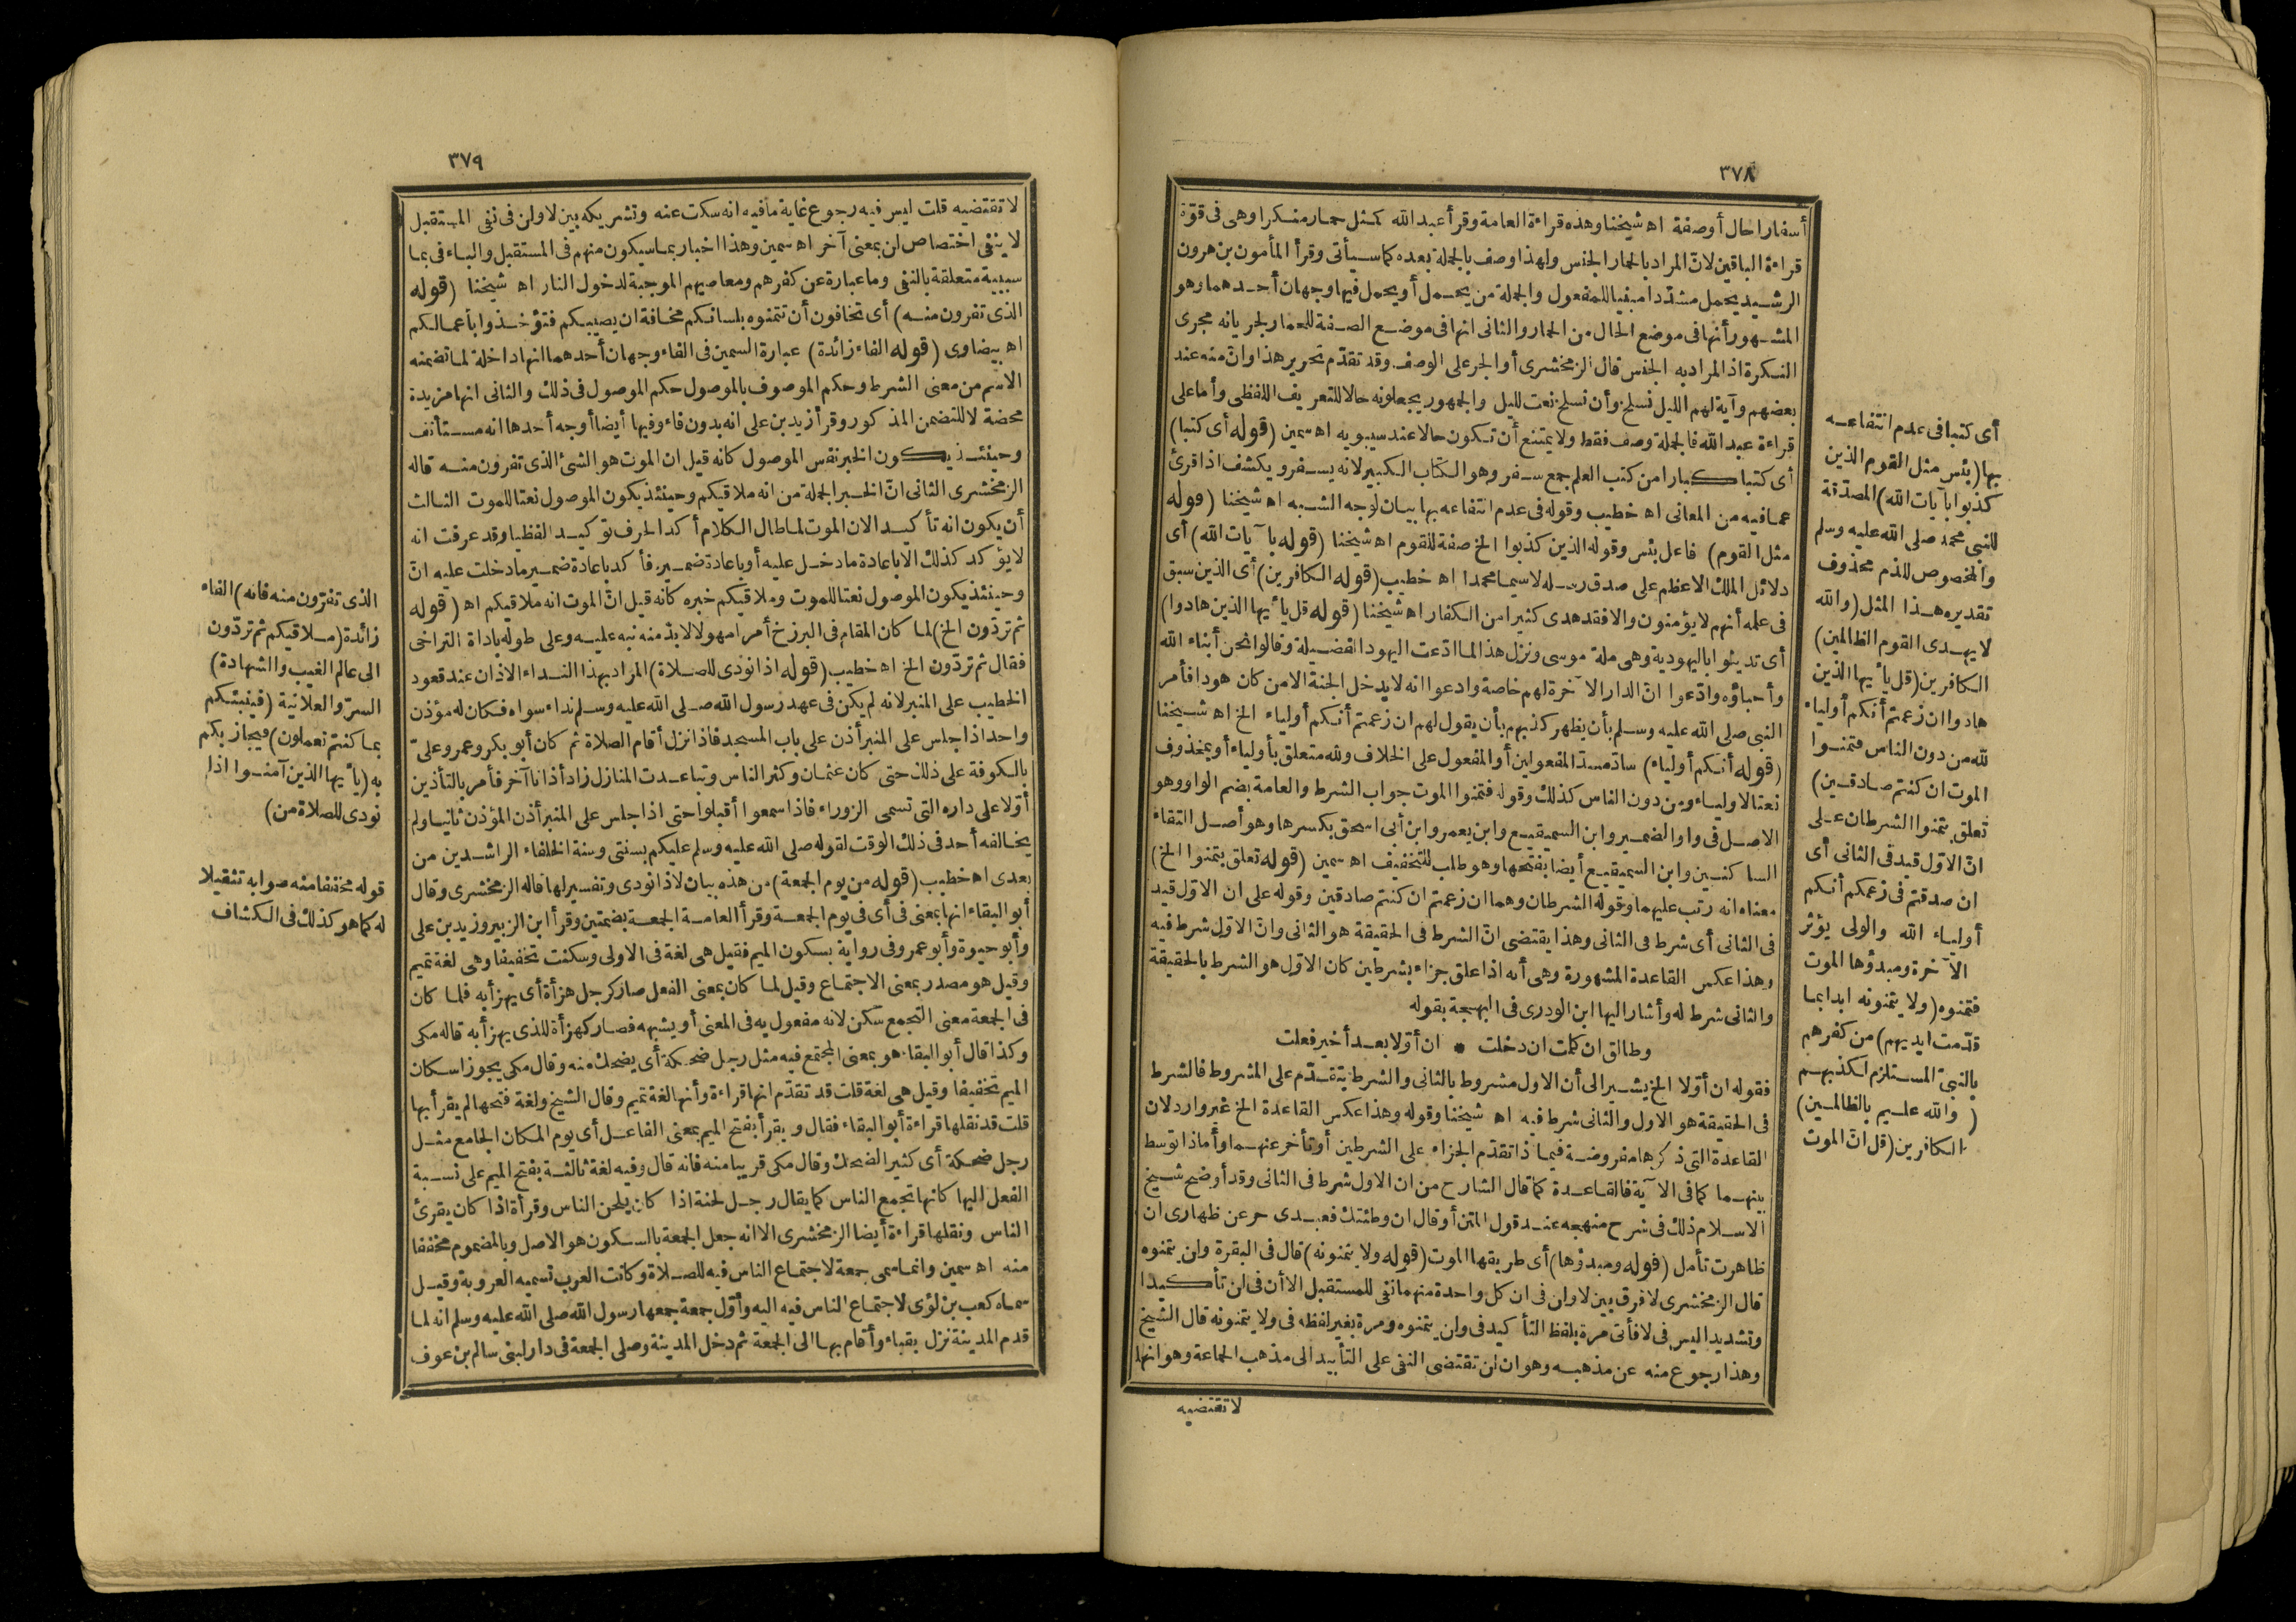 ٣٧٨
أسفارا حال أوصفة اه شيخنا وهذه قراءة العامة وقرأ عبد الله كمثل حمار منكرا وهى فى قوّة
قراءة الباقين لانّ المراد بالحمار الجنس ولهذا وصف بالجملة بعده كما سيأتى وقرأ المأمون بن هرون
الرشيد يحمل مشدّدا مبنيا للمفعول والجملة من يحمل أو يحمل فيها وجهان أحدهما وهو
المشهور أنها فى موضع الحال من الحمار والثانى انها فى موضع الصفة للحمار لجريانه مجرى
النكرة اذ المراد به الجنس قال الزمخشرى أو الجر على الوصف وقد تقدّم تحرير هذا وانّ منه عند
بعضهم وآية لهم الليل نسلخ وأن نسلخ نعت لليل والجمهور يجعلونه حالا للتعريف اللفظى وأما على
قراءة عبد الله فالجملة وصف فقط ولا يمتنع أن تكون حالا عند سيبويه اه سمين (قوله أى كتبا)
أى كتبا كبارا من كتب العلم جمع سفر وهو الكتاب الكبير لانه يسفر ويكشف اذا قرئ
عما فيه من المعانى اه خطيب وقوله فى عدم انتفاعه بها بيان لوجه الشبه اه شيخنا (قوله
مثل القوم) فاعل بئس وقوله الذين كذبوا الخ صفة للقوم اه شيخنا (قوله با آيات الله) أى
دلائل الملك الاعظم على صدق رسله لا سيما محمدا اه خطيب (قوله الكافرين) أى الذين سبق
فى علمه أنهم لا يؤمنون والا فقد هدى كثيرا من الكفار اه شيخنا (قوله قل يا أيها الذين هادوا)
أى تدينوا باليهودية وهى ملة موسى ونزل هذا لما ادّعت اليهود الفضيلة وقالوا نحن أبناء الله
وأحباؤه وادّعوا انّ الدار الآخرة لهم خاصة وادعوا انه لا يدخل الجنة الا من كان هودا فأمر
النبى صلى الله عليه وسلم بأن يظهر كذبهم بأن يقول لهم ان زعمتم أنكم أولياء الخ اه شيخنا
(قوله أنكم أولياء) سادّ مسدّ المفعولين أو المفعول على الخلاف ولله متعلق بأولياء أو بمحذوف
نعتا لاولياء ومن دون الناس كذلك وقوله فتمنوا الموت جواب الشرط والعامة بضم الواو وهو
الاصل فى واو الضمير وابن السميقيع وابن يعمر وابن أبى اسحق بكسرها وهو أصل التقاء
الساكنين وابن السميقيع أيضا بفتحها وهو طلب للتخفيف اه سمين (قوله تعلق بتمنوا الخ)
معناه انه رتب عليهما وقوله الشرطان وهما ان زعمتم ان كنتم صادقين وقوله على انّ الاوّل قيد
فى الثانى أى شرط فى الثانى وهذا يقتضى انّ الشرط فى الحقيقة هو الثانى وانّ الاوّل شرط فيه
وهذا عكس القاعدة المشهورة وهى أنه اذا علق جزاء بشرطين كان الاوّل هو الشرط بالحقيقة
والثانى شرط له وأشار اليها ابن الوردى فى البهجة بقوله
وطالق ان كلت ان دخلت * ان أوّلا بعد أخير فعلت
فقوله ان أوّلا الخ يشير الى أن الاول مشروط بالثانى والشرط يتقدّم على المشروط فالشرط
فى الحقيقة هو الاول والثانى شرط فيه اه شيخنا وقوله وهذا عكس القاعدة الخ غير وارد لان
القاعدة التى ذكرها مفروضة فيما اذا تقدّم الجزاء على الشرطين أو تأخر عنهما وأما اذا توسط
بينهما كما فى الآية فالقاعدة كما قال الشارح من ان الاول شرط فى الثانى وقد أوضح شيخ
الاسلام ذلك فى شرح منهجه عند قول المتن أو قال ان وطئتك فعبدى حر عن ظهارى ان
ظاهرت تأمل (قوله ومبدؤها) أى طريقها الموت (قوله ولا يتمنونه) قال فى البقرة ولن يتمنوه
قال الزمخشرى لا فرق بين لا ولن فى ان كل واحدة منهما نفى للمستقبل الا أن فى لن تأكيدا
وتشديدا ليس فى لا فأتى مرة بلفظ التأكيد فى ولن يتمنوه ومرة بغير لفظه فى ولا يتمنونه قال الشيخ
وهذا رجوع منه عن مذهبه وهو ان لن تقتضى النفى على التأبيد الى مذهب الجماعة وهو انها
لا تقتضيه
أى كتبا فى عدم انتفاعه
بها (بئس مثل القوم الذين
كذبوا بآيات الله) المصدّقة
للنبى محمد صلى الله عليه وسلم
والمخصوص للذم محذوف
تقديره هذا المثل (والله
لا يهدى القوم الظالمين)
الكافرين (قل يا أيها الذين
هادوا ان زعمتم أنكم أولياء
لله من دون الناس فتمنوا
الموت ان كنتم صادقين)
تعلق بتمنوا الشرطان على
انّ الاوّل قيد فى الثانى أى
ان صدقتم فى زعمكم أنكم
أولياء الله والولى يؤثر
الآخرة ومبدؤها الموت
فتمنوه (ولا يتمنونه ابدا بما
قدّمت ايديهم) من كفرهم
بالنبىّ المستلزم لكذبهم
(والله عليم بالظالمين)
الكافرين (قل انّ الموت
٣٧٩
لا تقتضيه قلت ليس فيه رجوع غاية ما فيه انه سكت عنه وتشريكه بين لا ولن فى نفى المستقبل
لا ينفى اختصاص لن بمعنى آخر اه سمين وهذا اخبار بما سيكون منهم فى المستقبل والباء فى بما
سببية متعلقة بالنفى وما عبارة عن كفرهم ومعاصيهم الموجبة لدخول النار اه شيخنا (قوله
الذى تفرون منه) أى تخافون أن تتمنوه بلسانكم مخافة ان يصيبكم فتؤخذوا بأعمالكم
اه بيضاوى (قوله الفاء زائدة) عبارة السمين فى الفاء وجهان أحدهما انها داخلة لما تضمنه
الاسم من معنى الشرط وحكم الموصوف بالموصول حكم الموصول فى ذلك والثانى انها مزيدة
محضة لا للتضمن المذكور وقرأ زيد بن على انه بدون فاء وفيها أيضا أوجه أحدها انه مستأنف
وحينئذ يكون الخبر نفس الموصول كأنه قيل ان الموت هو الشئ الذى تفرون منه قاله
الزمخشرى الثانى انّ الخبر الجملة من انه ملاقيكم وحينئذ يكون الموصول نعتا للموت الثالث
أن يكون انه تأكيد الان الموت لما طال الكلام أكد الحرف توكيدا لفظيا وقد عرفت انه
لا يؤكد كذلك الا باعادة ما دخل عليه أو باعادة ضميره فأكد باعادة ضمير ما دخلت عليه انّ
وحينئذ يكون الموصول نعتا للموت وملاقيكم خبره كأنه قيل انّ الموت انه ملاقيكم اه (قوله
ثم تردّون الخ) لما كان المقام فى البرزخ أمرا مهولا لا بدّ منه نبه عليه وعلى طوله باداة التراخى
فقال ثم تردّون الخ اه خطيب (قوله اذا نودى للصلاة) المراد بهذا النداء الاذان عند قعود
الخطيب على المنبر لانه لم يكن فى عهد رسول الله صلى الله عليه وسلم نداء سواه فكان له مؤذن
واحد اذا جلس على المنبر أذن على باب المسجد فاذا نزل أقام الصلاة ثم كان أبو بكر وعمر وعلىّ
بالكوفة على ذلك حتى كان عثمان وكثر الناس وتباعدت المنازل زاد أذانا آخر فأمر بالتأذين
أوّلا على داره التى تسمى الزوراء فاذا سمعوا أقبلوا حتى اذا جلس على المنبر أذن المؤذن ثانيا ولم
يخالفه أحد فى ذلك الوقت لقوله صلى الله عليه وسلم عليكم بسنتى وسنة الخلفاء الراشدين من
بعدى اه خطيب (قوله من يوم الجمعة) من هذه بيان لاذا نودى وتفسير لها قاله الزمخشرى وقال
أبو البقاء انها بمعنى فى أى فى يوم الجمعة وقرأ العامة الجمعة بضمتين وقرأ ابن الزبير وزيد بن على
وأبو حيوة وأبو عمرو فى رواية بسكون الميم فقيل هى لغة فى الاولى وسكنت تخفيفا وهى لغة تميم
وقيل هو مصدر بمعنى الاجتماع وقيل لما كان بمعنى الفعل صار كرجل هزأة أى يهزأ به فلما كان
فى الجمعة معنى التجمع سكن لانه مفعول به فى المعنى أو يشبهه فصار كهزأة للذى يهزأ به قاله مكى
وكذا قال أبو البقاء هو بمعنى المجتمع فيه مثل رجل ضحكة أى يضحك منه وقال مكى يجوز اسكان
الميم تخفيفا وقيل هى لغة قلت قد تقدّم انها قراءة وأنها لغة تميم وقال الشيخ ولغة فتحها لم يقرأ بها
قلت قد نقلها قراءة أبو البقاء فقال ويقرأ بفتح الميم بمعنى الفاعل أى يوم المكان الجامع مثل
رجل ضحكة أى كثير الضحك وقال مكى قريبا منه فانه قال وفيه لغة ثالثة بفتح الميم على نسبة
الفعل اليها كانها تجمع الناس كما يقال رجل لحنة اذا كان يلحن الناس وقرأة اذا كان يقرئ
الناس ونقلها قراءة أيضا الزمخشرى الا انه جعل الجمعة بالسكون هو الاصل وبالمضموم مخففا
منه اه سمين وانما سمى جمعة لاجتماع الناس فيه للصلاة وكانت العرب تسميه العروبة وقيل
سماه كعب بن لؤى لاجتماع الناس فيه اليه وأوّل جمعة جمعها رسول الله صلى الله عليه وسلم انه لما
قدم المدينة نزل بقباء وأقام بها الى الجمعة ثم دخل المدينة وصلى الجمعة فى دار لبنى سالم بن عوف
الذى تفرّون منه فانه) الفاء
زائدة (ملاقيكم ثم تردّون
الى عالم الغيب والشهادة)
السرّ والعلانية (فينبئكم
بما كنتم تعملون) فيجازيكم
به (يا أيها الذين آمنوا اذا
نودى للصلاة من)
قوله مخففا منه صوابه تثقيلا
له كما هو كذلك فى الكشاف